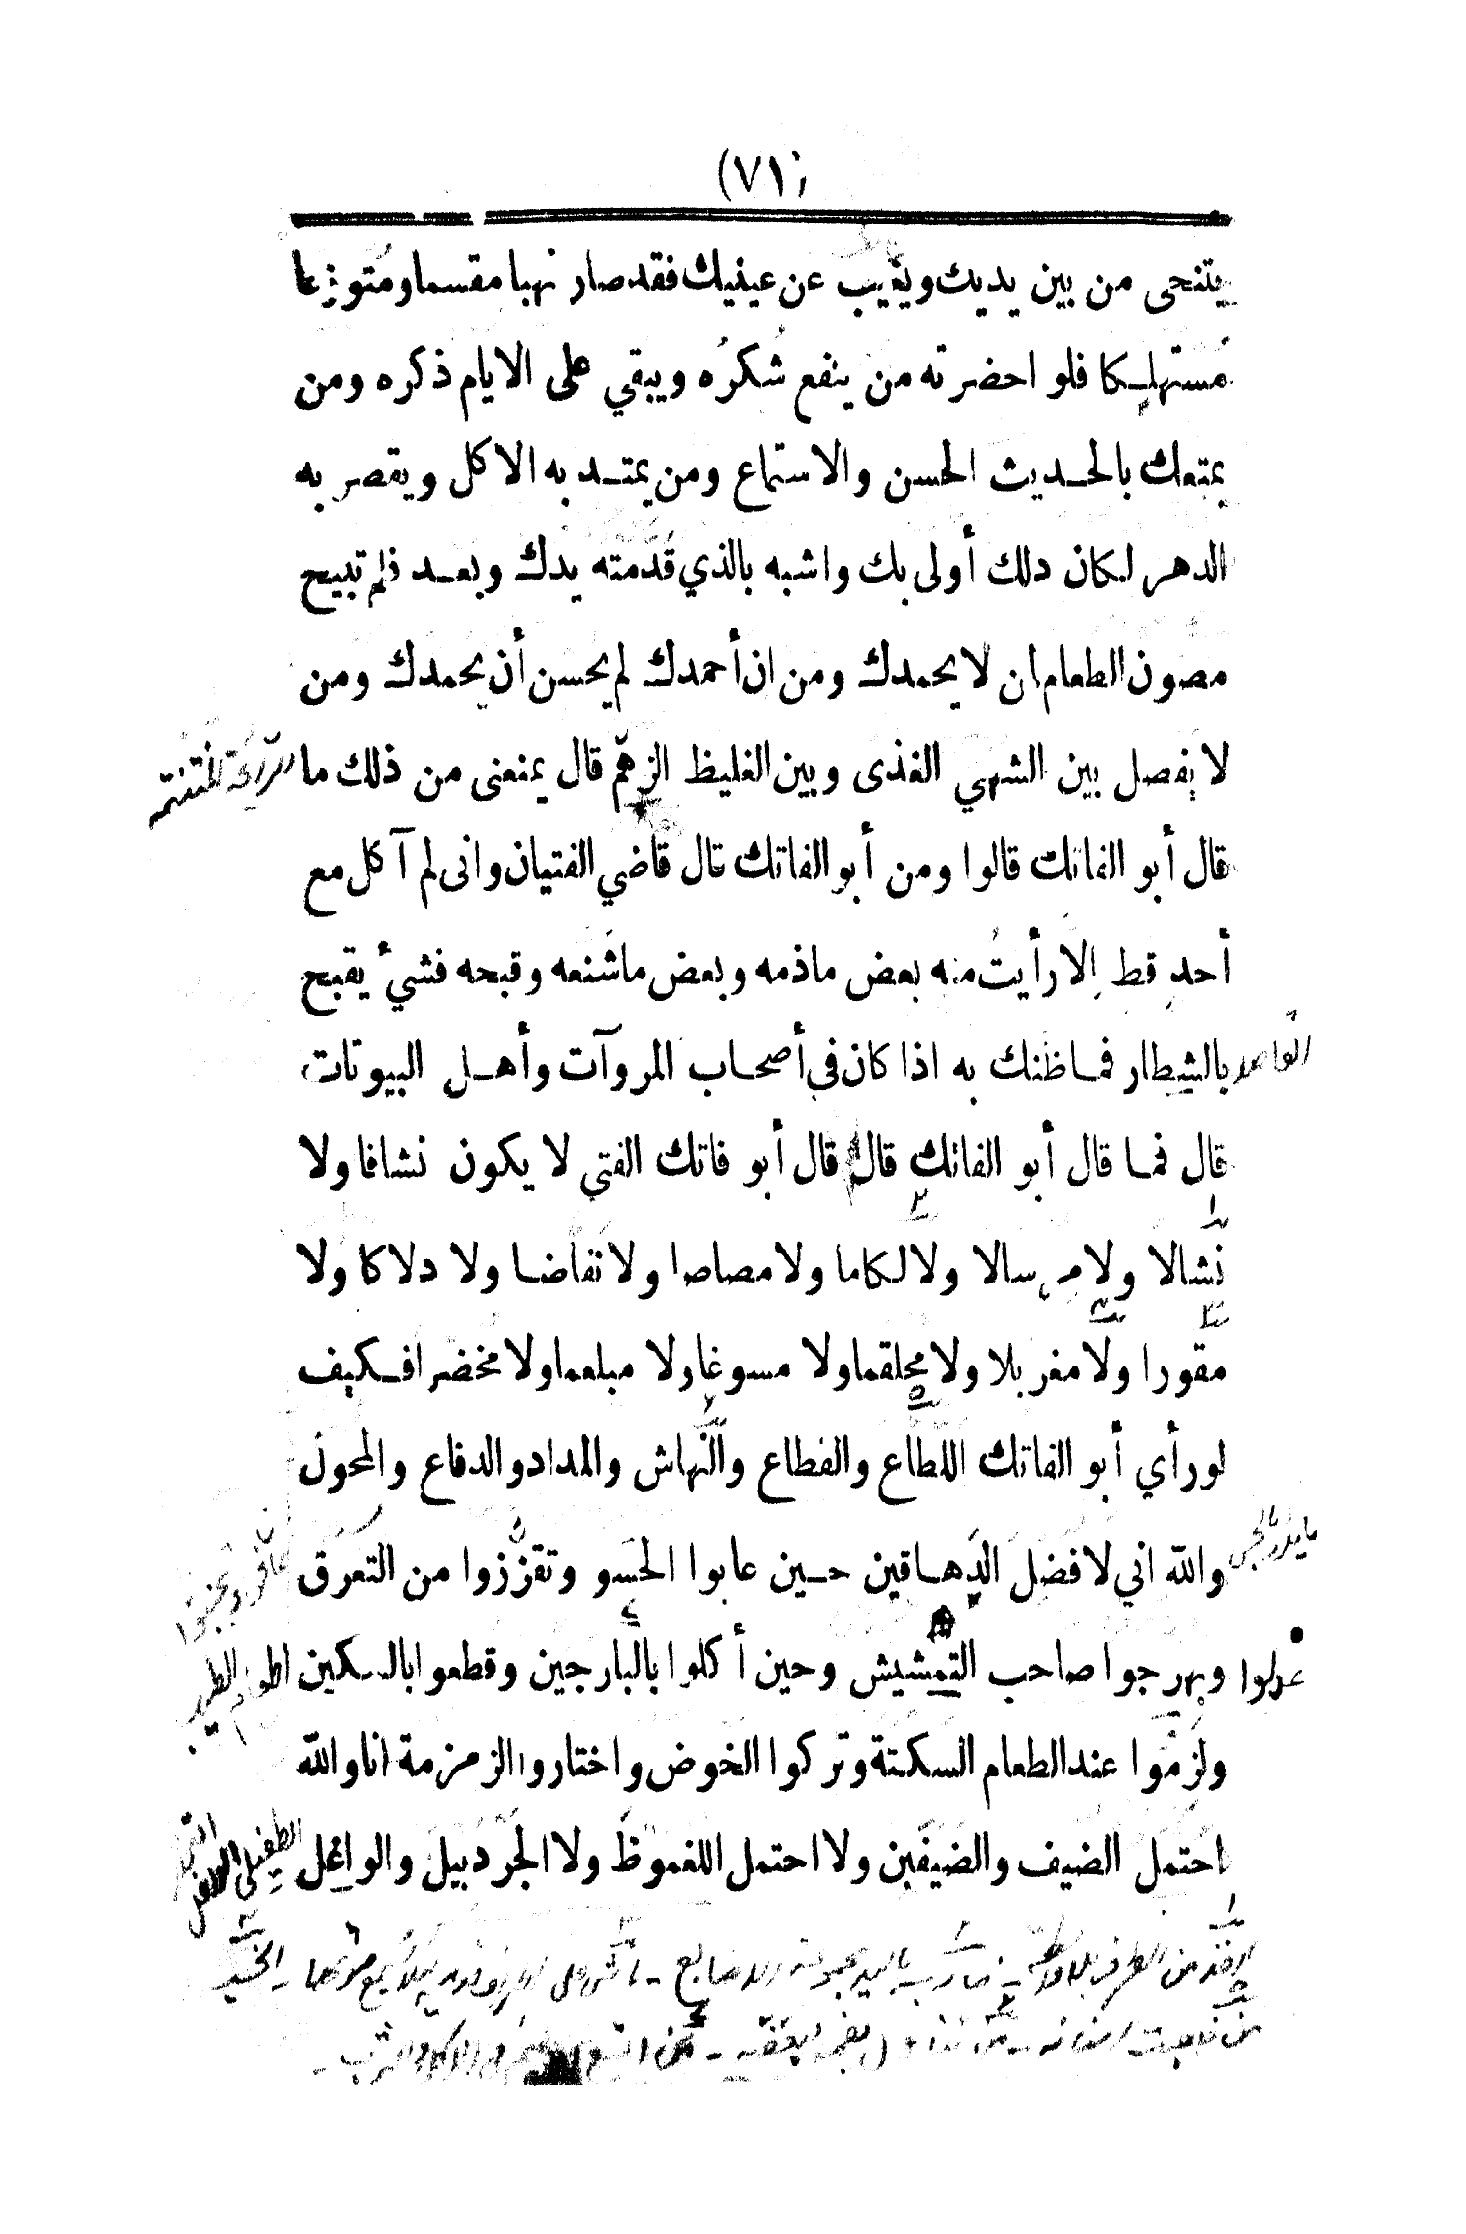 (٧١)
يتنحى من بين يديك ويغيب عن عينيك فقد صار نهبا مقسما ومتوزعا
مستهلكا فلو احضرته من ينفع شكره ويبقي على الايام ذكره ومن
يمتعك بالحديث الحسن والاستماع ومن يمتد به الاكل ويقصر به
الدهر لكان ذلك أولى بك واشبه بالذي قدمته يدك وبعد فلم تبيح
مصون الطعام ان لا يحمدك ومن ان أحمدك لم يحسن أن يحمدك ومن
لا يفصل بين الشهي الغذى وبين الغليظ الزهم قال يمنعنى من ذلك ما
الرائحة المنتنة
قال أبو الفاتك قالوا ومن أبو الفاتك قال قاضي الفتيان وانى لم آكل مع
أحد قط إلا رأيت منه بعض ماذمه وبعض ماشنعه وقبحه فشيء يقبح
بالشطار فما ظنك به اذا كان في أصحاب المروآت وأهل البيوتات
قال فما قال أبو الفاتك قال قال أبو فاتك الفتي لا يكون نشافا ولا
نشالا ولا مرسالا ولا لكاما ولا مصاصا ولا نفاضا ولا دلاكا ولا
مقورا ولا مغربلا ولا محلقما ولا مسوغا ولا مبلعما ولا مخضرا فكيف
لو رأي أبو الفاتك اللطاع والقطاع والنهاش والمداد والدفاع والمحول
والله اني لافضل الدهاقين حين عابوا الحسو وتقززوا من التعرق
وبهرجوا صاحب التمشيش وحين أكلوا بالبارجين وقطعوا بالسكين
عدلوا
ولزموا عند الطعام السكتة وتركوا الخوض واختاروا الزمزمة أنا والله
احتمل الضيف والضيفين ولا احتمل اللغموظ ولا الجردبيل والواغل
الطفيلى